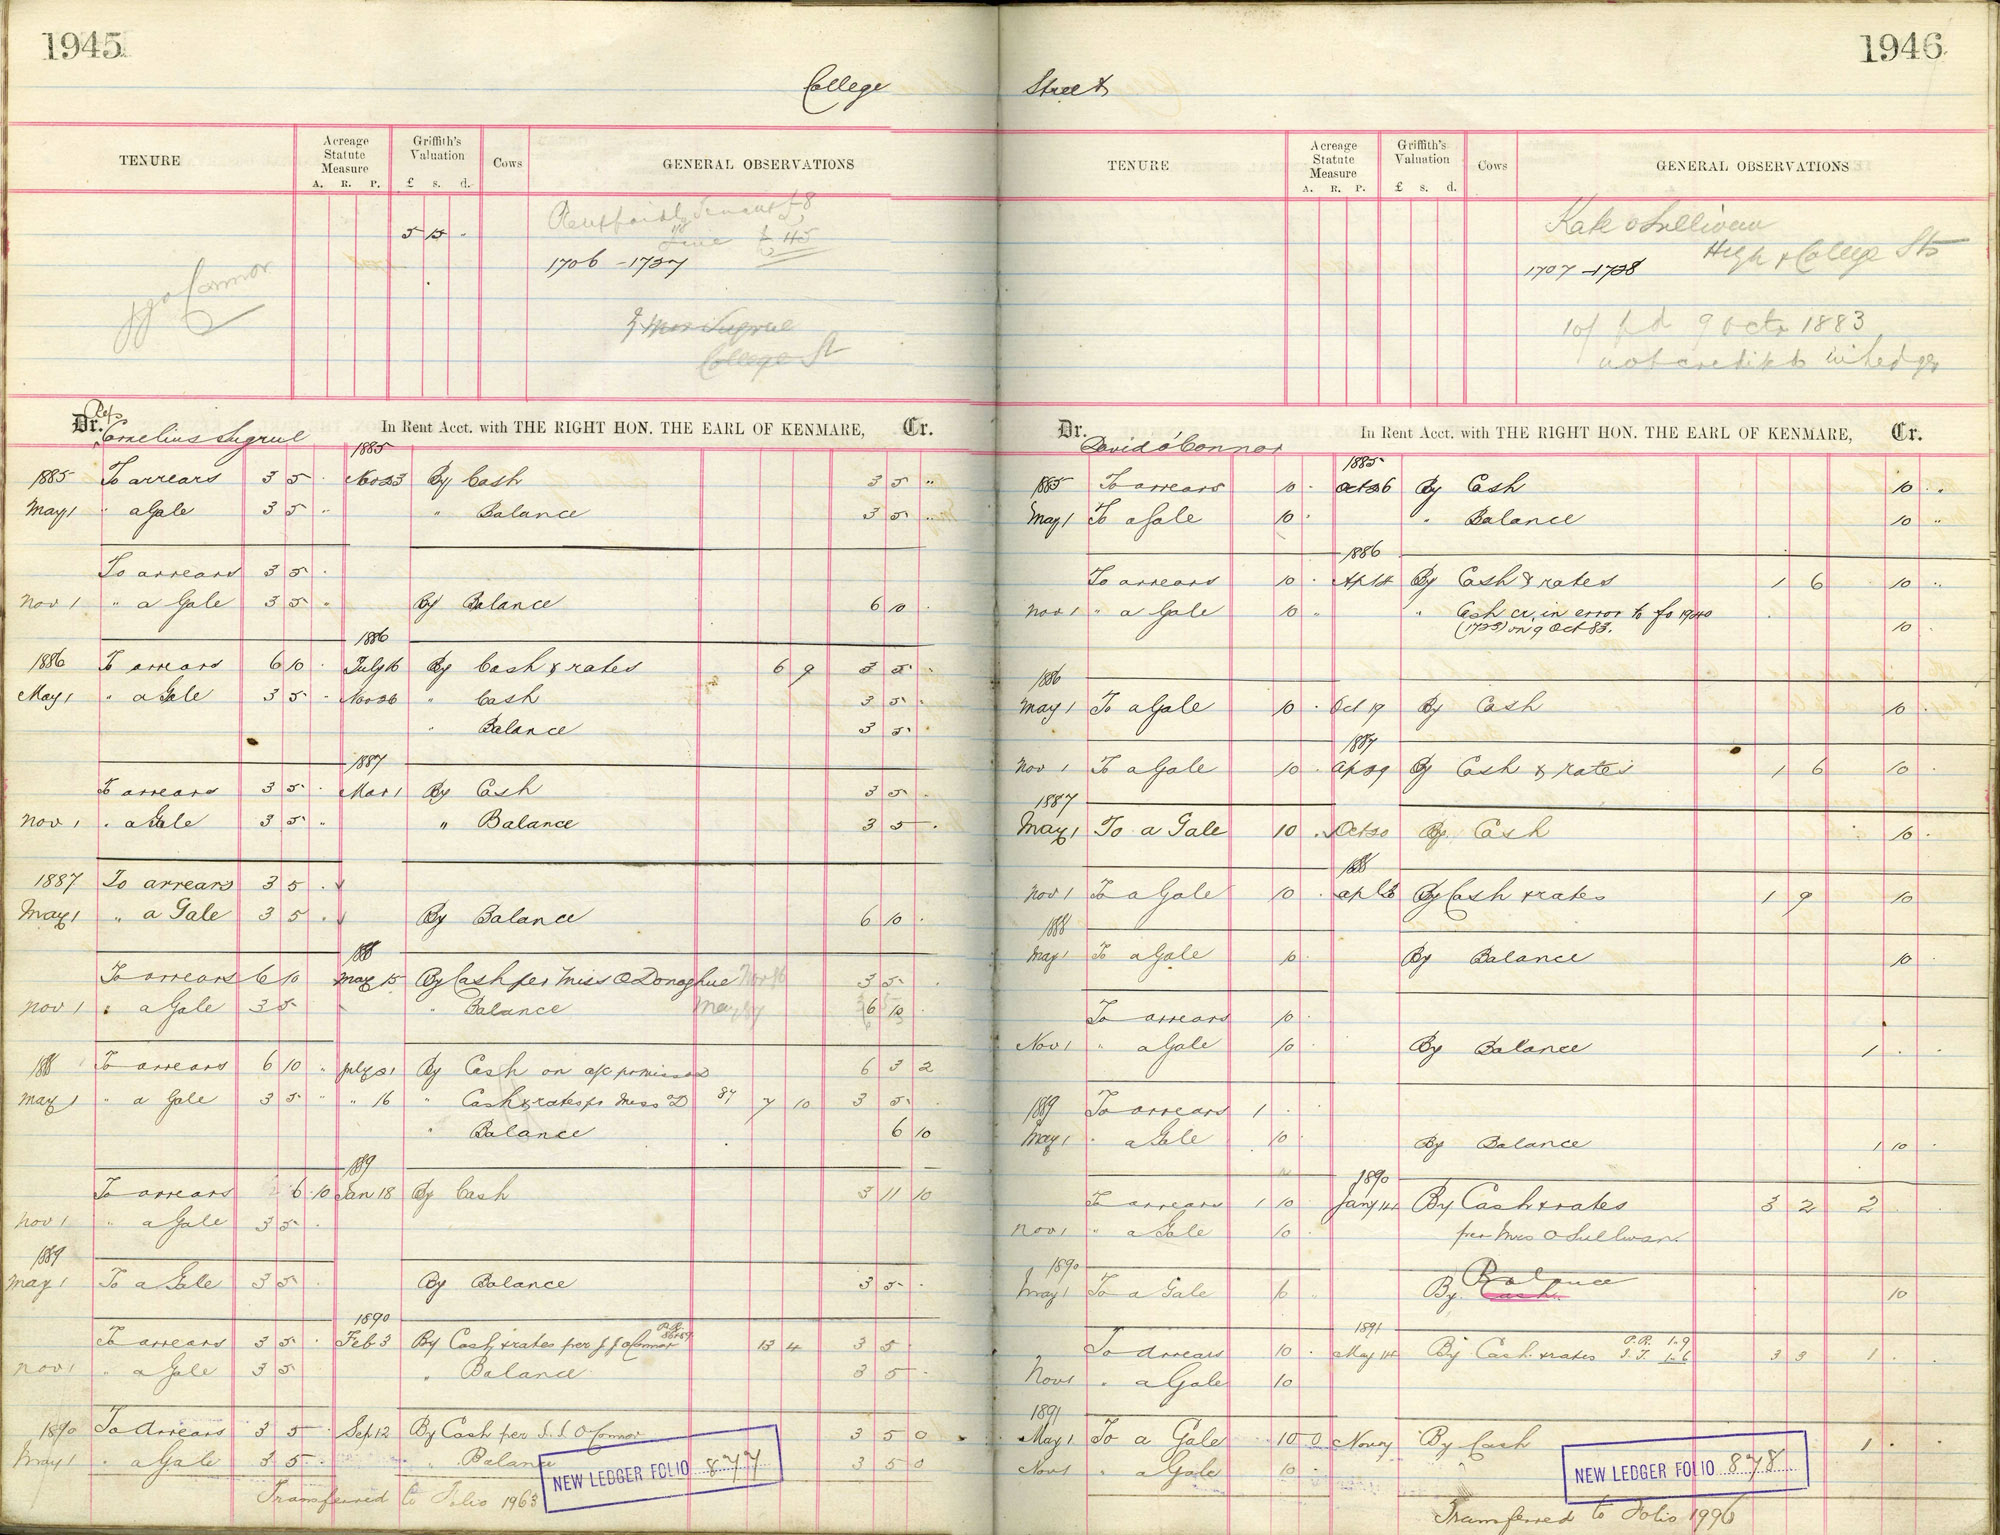 1945
College
TENURE Acreage Statute Measure A. R. P. Griffith's Valuation £ s. d. Cows GENERAL OBSERVATIONS
5 15 "
Tenant £8
Line £45
1706 - 1727
J J O'Connor
Mrs Sugrue
College St
Dr. Reps Cornelius Sugrue In Rent Acct. with THE RIGHT HON. THE EARL OF KENMARE, Cr.
1885
1885 To arrears 3 5 " Nov 23 By Cash 3 5 "
May 1 " a Gale 3 5 " " Balance 3 5 "
To arrears 3 5 "
Nov 1 " a Gale 3 5 " By Balance 6 10 "
1886
1886 To arrears 6 10 " July 16 By Cash & rates 6 9 3 5 "
May 1 " a Gale 3 5 " Nov 26 " Cash 3 5 "
" Balance 3 5 "
1887
To arrears 3 5 " Mar 1 By Cash 3 5 "
Nov 1 " a Gale 3 5 " " Balance 3 5 "
1887 To arrears 3 5 "
May 1 " a Gale 3 5 " By Balance 6 10 "
188
To arrears 6 10 May 15 By Cash per Miss O'Donoghue Nov 86 3 5 "
Nov 1 " a Gale 3 5 " Balance May 87 6 10 "
188 To arrears 6 10 " July 21 By Cash on a/c promised 6 3 2
May 1 " a Gale 3 5 " " 16 " Cash & rates pr Miss O'D 87 7 10 3 5 "
" Balance 6 10
1889
To arrears 6 10 Jan 18 By Cash 3 11 10
Nov 1 " a Gale 3 5 "
1889
May 1 To a Gale 3 5 " By Balance 3 5 "
1890
To arrears 3 5 " Feb 3 By Cash & rates per J J O'Connor P.R. 88+89 13 4 3 5 "
Nov 1 " a Gale 3 5 " Balance 3 5 "
1890 To Arrears 3 5 " Sep 12 By Cash per J. J. O'Connor 3 5 0
May 1 " a Gale 3 5 " " Balance 3 5 0
NEW LEDGER FOLIO 877
Transferred to Folio 1963
1946
Street
TENURE Acreage Statute Measure A. R. P. Griffith's Valuation £ s. d. Cows GENERAL OBSERVATIONS
Kate O'Sullivan
High & College Sts
1707 - 1728
10/ pd 9 Octr 1883
not credited in Ledger
Dr. David O'Connor In Rent Acct. with THE RIGHT HON. THE EARL OF KENMARE, Cr.
1885
1885 To arrears 10 " Oct 26 By Cash 10 "
May 1 To a Gale 10 " " Balance 10 "
1886
To arrears 10 " Apl 14 By Cash & rates 1 6 10 "
Nov 1 " a Gale 10 " " Cash cr. in error to fo 1940
(1723) on 9 Oct 83. 10
1886
May 1 To a Gale 10 " Oct 19 By Cash 10 "
1887
Nov 1 To a Gale 10 " Ap 29 By Cash & rates 1 6 10 "
1887
May 1 To a Gale 10 " Oct 20 By Cash 10 "
188
Nov 1 To a Gale 10 " Apl 26 By Cash & rates 1 9 10
188
May 1 To a Gale 10 By Balance 10 "
To arrears 10 "
Nov 1 " a Gale 10 " By Balance 1 " "
1889 To arrears 1 "
May 1 " a Gale 10 " By Balance 1 10 "
1890
To arrears 1 10 Jany 14 By Cash & rates 3 2 2 " "
Nov 1 " a Gale 10 per Mrs O'Sullivan
1890 Balance
May 1 To a Gale 10 By Cash 10
1891
To Arrears 10 " May 14 By Cash & rates P.R. 1-9 S.T. 1-6 3 3 1 " "
Nov 1 " a Gale 10
1891
May 1 To a Gale 10 0 Nov 17 By Cash 1 " "
Nov 1 " a Gale 10 "
NEW LEDGER FOLIO 878
Transferred to Folio 1996